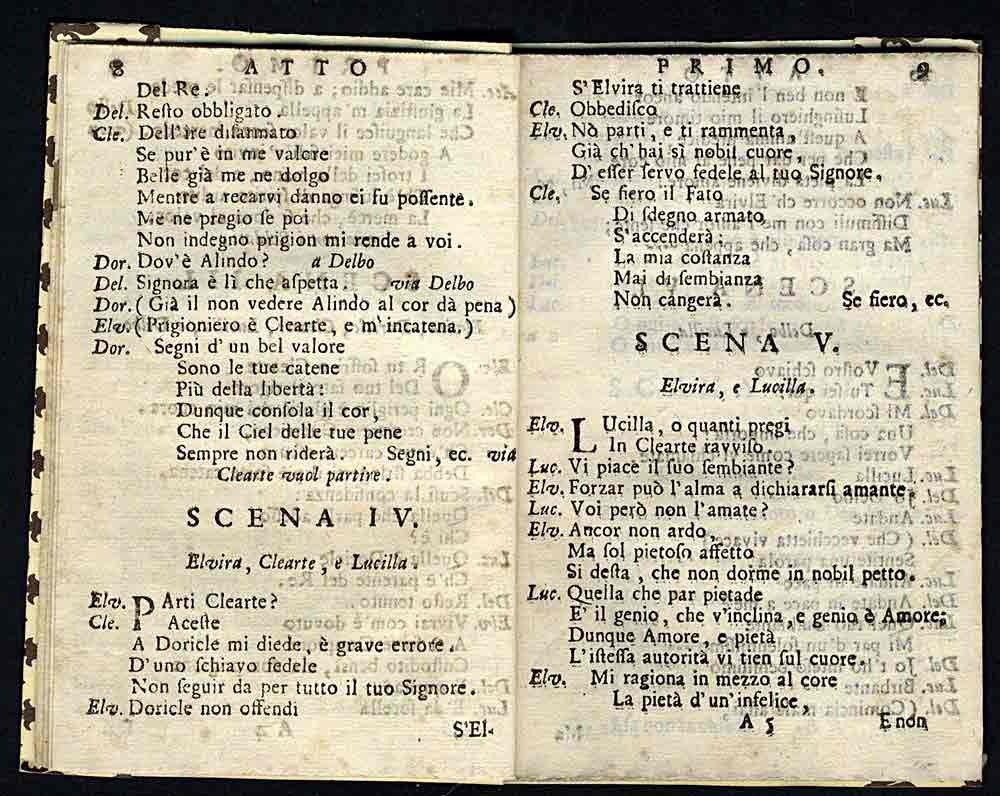 8 ATTO
Del Re.
Del. Reſto obbligato.
Cle. Dell'ire diſarmato
Se pur'è in me valore
Belle già me ne dolgo
Mentre a recarvi danno ei fu poſſente.
Me ne pregio ſe poi
Non indegno prigion mi rende a voi.
Dor. Dov'è Alindo? a Delbo
Del. Signora è lì che aſpetta. via Delbo
Dor. (Già il non vedere Alindo al cor dà pena)
Elv. (Prigioniero è Clearte, e m'incatena.)
Dor. Segni d'un bel valore
Sono le tue catene
Più della libertà:
Dunque conſola il cor,
Che il Ciel delle tue pene
Sempre non riderà. Segni, ec. via
Clearte vuol partire.
SCENA IV.
Elvira, Clearte, e Lucilla.
Elv. PArti Clearte?
Cle. Aceſte
A Doricle mi diede, è grave errore.
D'uno ſchiavo fedele
Non ſeguir da per tutto il tuo Signore.
Elv. Doricle non offendi
S'El-
PRIMO. 9
S'Elvira ti trattiene
Cle. Obbediſco
Elv. Nò parti, e ti rammenta,
Già ch'hai sì nobil cuore,
D'eſſer ſervo fedele al tuo Signore.
Cle. Se fiero il Fato
Di ſdegno armato
S'accenderà;
La mia coſtanza
Mai di ſembianza
Non cangerà. Se fiero, ec.
SCENA V.
Elvira, e Lucilla.
Elv. LUcilla, o quanti pregi
In Clearte ravviſo.
Luc. Vi piace il ſuo ſembiante?
Elv. Forzar può l'alma a dichiararſi amante;
Luc. Voi però non l'amate?
Elv. Ancor non ardo,
Ma ſol pietoſo affetto
Si deſta, che non dorme in nobil petto.
Luc. Quella che par pietade
E' il genio, che v'inclina, e genio è Amore;
Dunque Amore, e pietà
L'iſteſſa autorità vi tien ſul cuore.
Elv. Mi ragiona in mezzo al core
La pietà d'un'infelice,
A 5 E non